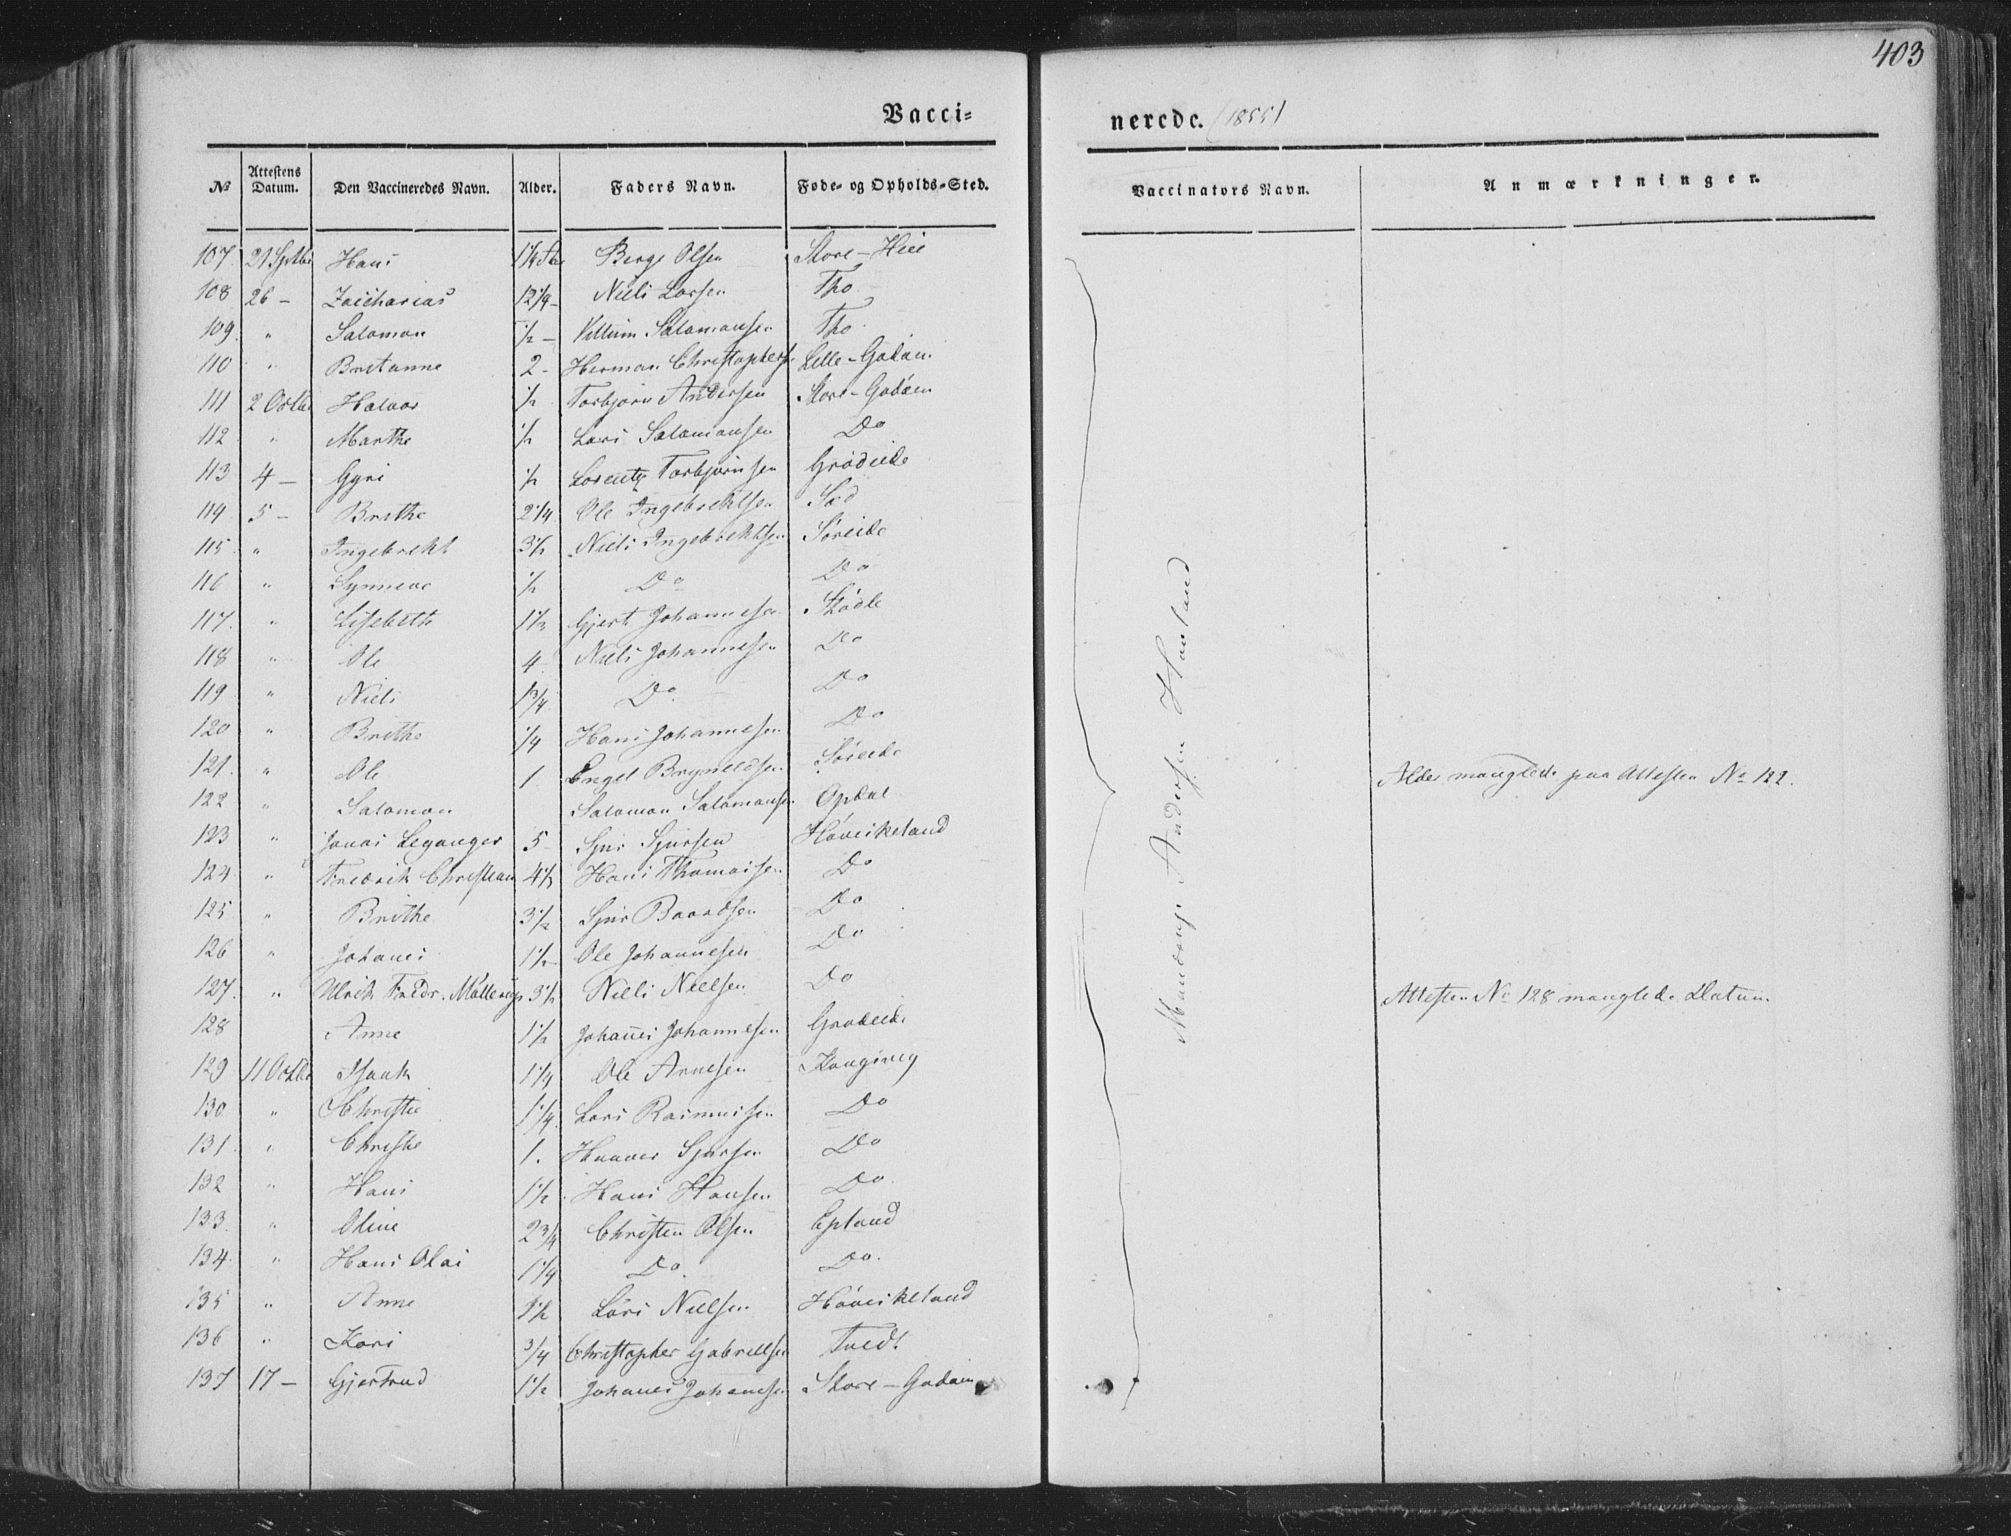 403
Vacci-
nerede. (1855)
No
Attestens Datum.
Den Vaccineredes Navn.
Alder.
Faders Navn.
Føde- og Opholds-Sted.
Vaccinators Navn.
Anmærkninger.
107. 21 Septbr Hans Berge Olsen Store-Heie
108 26 - Zaccharias 12 1/4 - Niels Larsen Tho
109. " Salomon 1/2 - Villum Salamonsen Tho
110 " Britanne 2 - Herman Christophers. Lille-Godøen
111 2 Octbr Halvor 1/2 Torbjørn Andersen Store-Godøen
112 " Marthe 1/2 Lars Salamonsen Do
113 4 - Gyri 1/2 Lorentz Torbjørnsen Grødeide
114 5 - Brithe 2 1/4 Ole Ingebrektsen Sæd
115 " Ingebrekt 3 1/2 Niels Ingebrektsen Søreide
116 " Synneve 1/2 Do Do
117. " Lisebeth 1 1/2 Gjert Johannesen Stødle
118 " Ole 4 Niels Johannesen Do
119 " Niels 1 3/4 Do Do
120 " Brithe 1/4 Hans Johannesen Do
121. " Ole 1 Engel Bryneldsen Søreide
122 " Salamon Salamon Salamonsen Opdal
123 " Jonas Leganger 5 Sjur Sjursen Høviskeland
124 " Fredrik Christian 4 1/2 Hans Thomassen Do
125 " Brithe 3 1/2 Sjur Baardsen Do
126 " Johanes 1 1/2 Ole Johannesen Do
127. " Ulrik Fredr. Møllerup 3 1/2 Niels Nielsen Do
128 Anne 1 1/2 Johanes Johannesen Grødeide
129 11 Octbr Isaak 1 1/4 Ole Arnesen Kongsveg
130 " Christie 1 1/4 Lars Rasmussen Do
131 " Christie 1. Haaver Sjursen Do
132 " Hans 1 1/2 Hans Hansen Do
133. " Oline 2 3/4 Christen Olsen Epland
134. " Hans Olai 1 1/4 Do Do.
135 " Anne Lars Nielsen Høviskeland
136 " Kari 3/4 Christopher Gabrielsen Tvedt
137 17 - Gjertrud 1 1/2 Johanes Johanesen Store-Godøen
Mandrup Andersen Hauland
Alder manglede paa Attesten No 122.
Attesten No 128 manglede Datum.